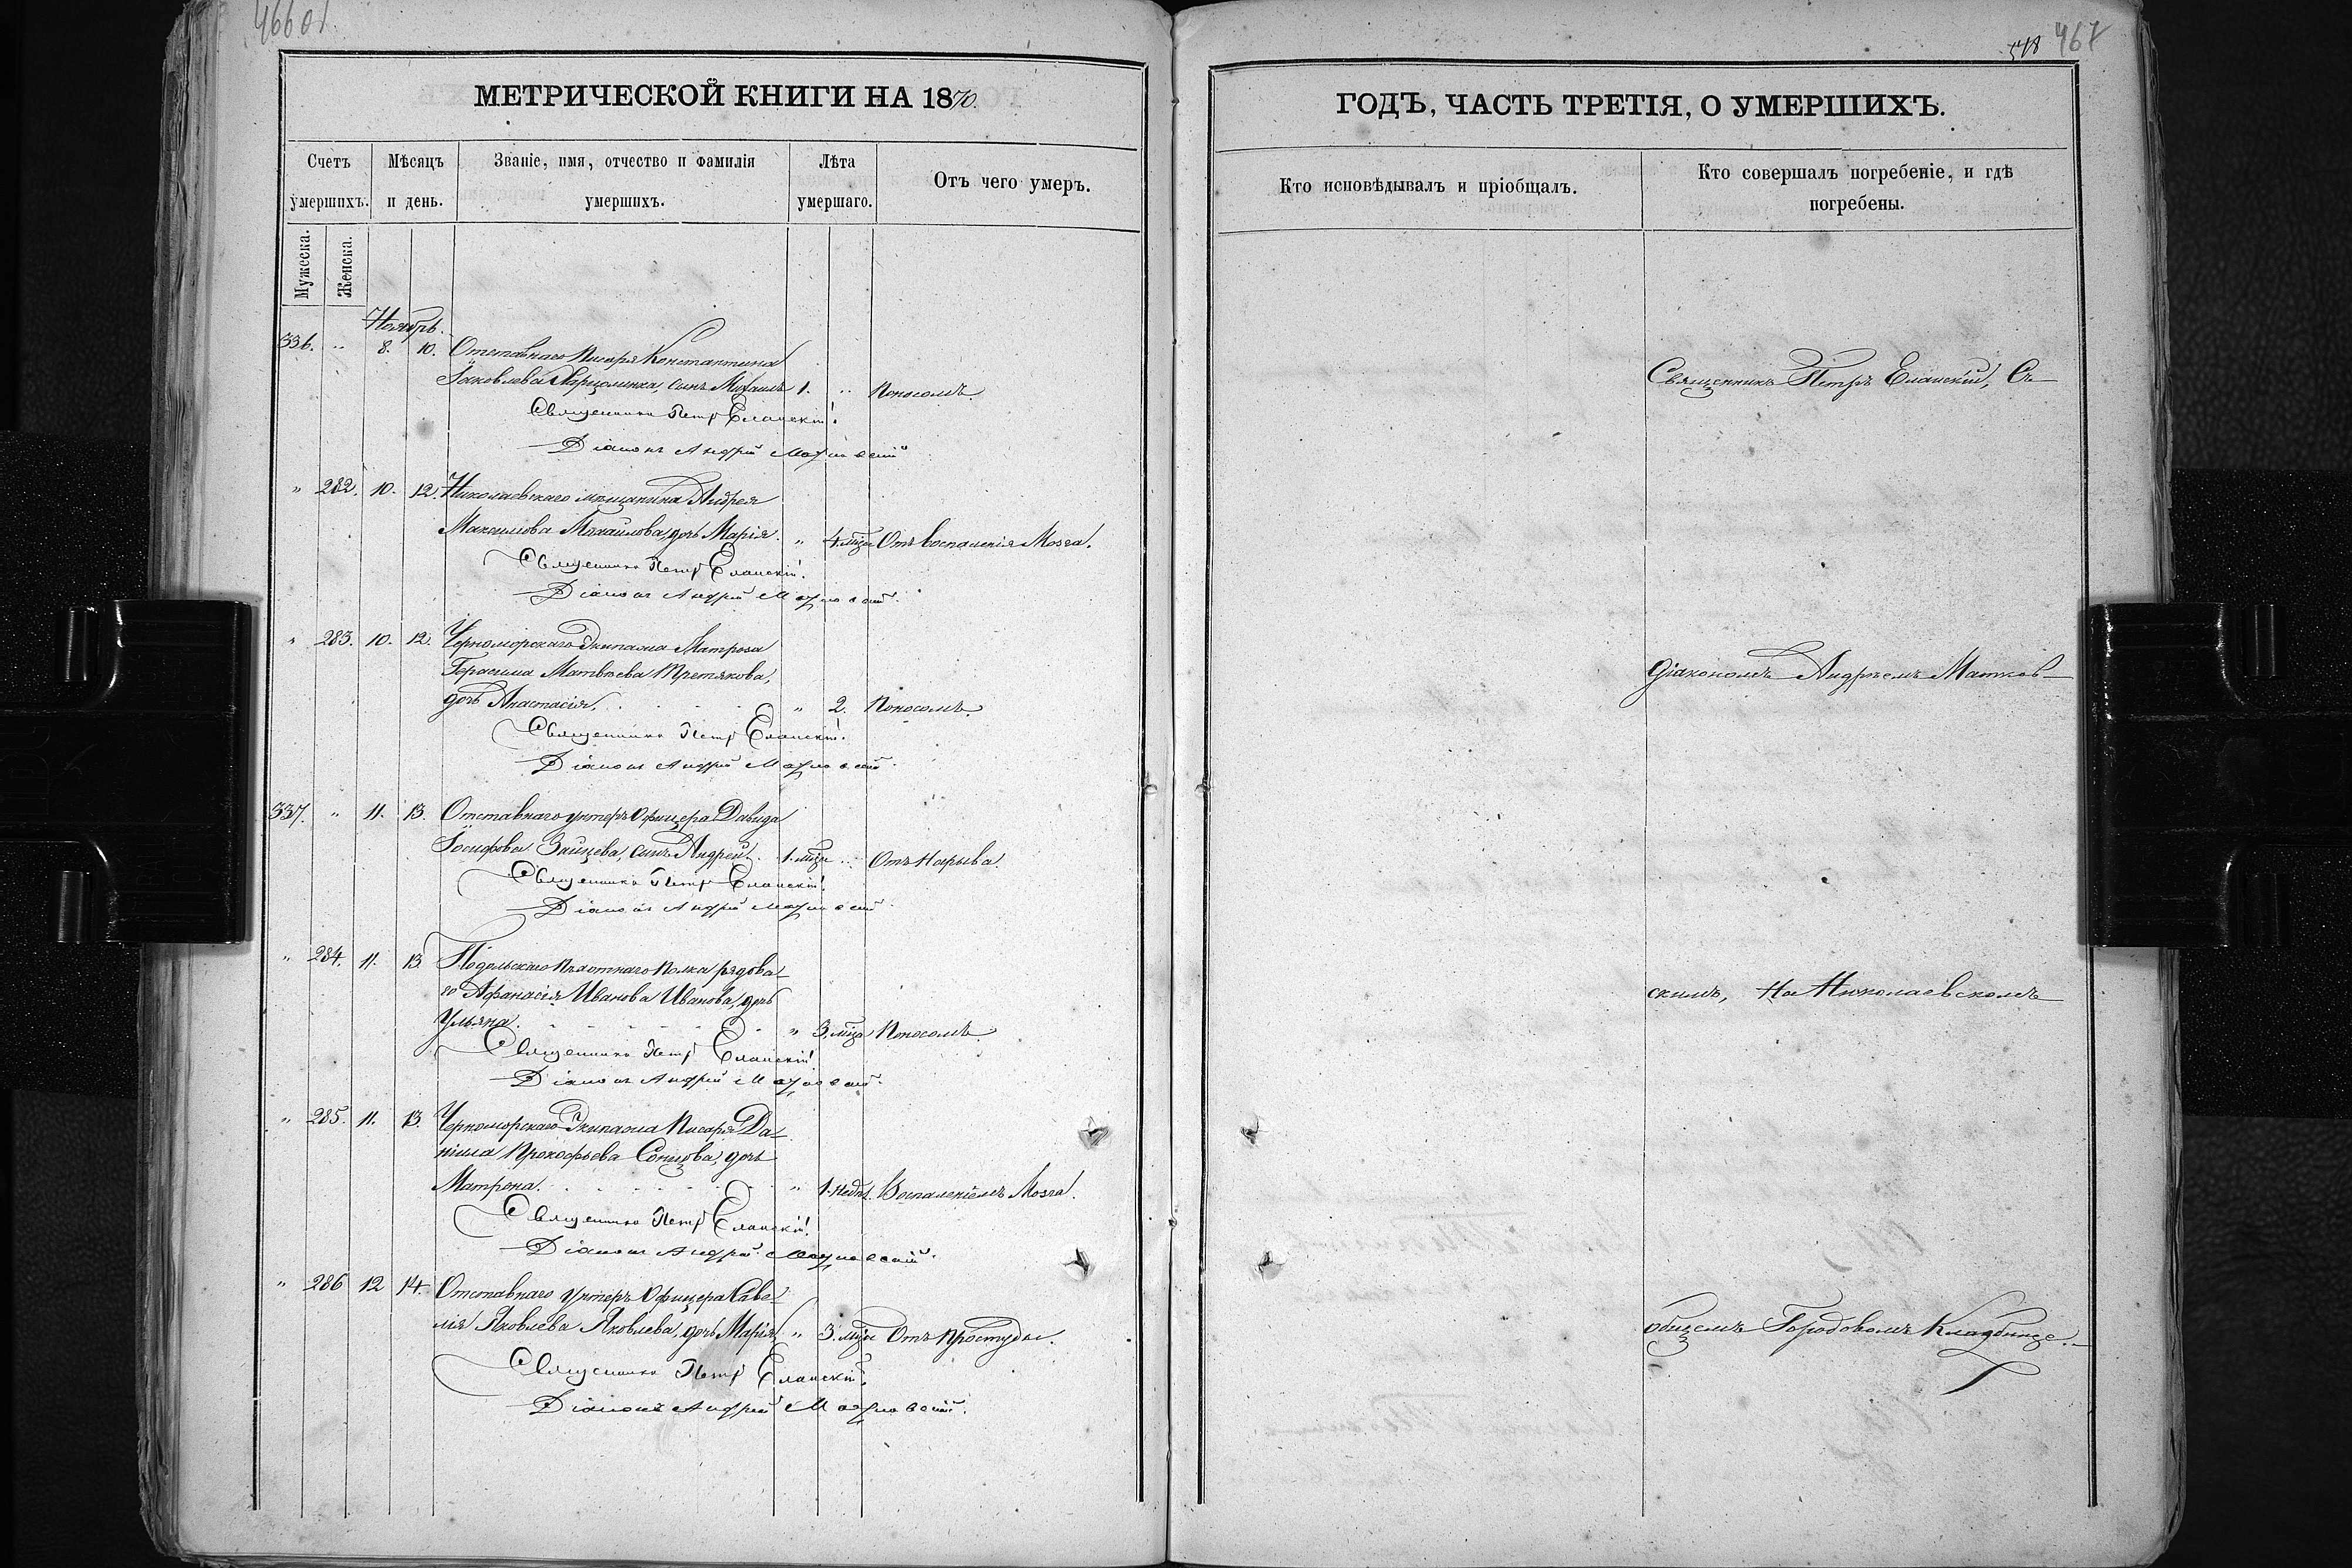 466об
МЕТРИЧЕСКОЙ КНИГИ НА 1870.
Счетъ умершихъ.
Мѣсяцъ и день.
Званіе, имя, отчество и фамилія умершихъ.
Лѣта умершаго.
Отъ чего умеръ.
Мужеска.
Женска.
Ноябрь.
336. " 8. 10. Отставнаго Писаря Константина
Іаковлева сынъ Михаилъ 1. " Поносомъ.
Священникъ Петръ Еланскій.
Діаконъ Андрей Матковскій
" 282. 10. 12. Николаевскаго мѣщанина Андрея
Максимова Михайлова, дочь Марія. " 4. мѣц Отъ воспаленія Мозга.
Священникъ Петръ Еланскій.
Діаконъ Андрей Матковскій.
" 283. 10. 12. Черноморскаго Экипажа Матроса
Герасима Матвѣева Третякова,
дочь Анастасія. " 2. Поносомъ.
Священникъ Петръ Еланскій.
Діаконъ Андрей Матковскій.
337. " 11. 13. Отставнаго унтеръ Офицера Давида
Іосифова Зайцева, сынъ Андрей. 1. мѣц " Отъ Нарыва.
Священникъ Петръ Еланскій.
Діаконъ Андрей Матковскій.
" 284. 11. 13. Подольскаго Пѣхотнаго Полка рядова-
го Афанасія Иванова Иванова, дочь
Ульяна. " 3. мѣца Поносомъ.
Священникъ Петръ Еланскій.
Діаконъ Андрей Матковскій.
" 285. 11. 13. Черноморскаго Экипажа Писаря Да-
ніила Прокофьева дочь
Матрона. " 1. недѣл. Воспаленіемъ Мозга.
Священникъ Петръ Еланскій.
Діаконъ Андрей Матковскій.
" 286 12 14. Отставнаго унтеръ Офицера Саве-
лія Яковлева Яковлева, дочь Марія, " 3. мѣц Отъ Простуды.
Священникъ Петръ Еланскій.
Діаконъ Андрей Матковскій.
467
ГОДЪ, ЧАСТЬ ТРЕТІЯ, О УМЕРШИХЪ.
Кто исповѣдывалъ и пріобщалъ.
Кто совершалъ погребеніе, и гдѣ погребены.
Священникъ Петръ Еланскій, Съ
діакономъ Андреемъ Матков-
скимъ, На Николаевскомъ
общемъ Городовомъ Кладбище.